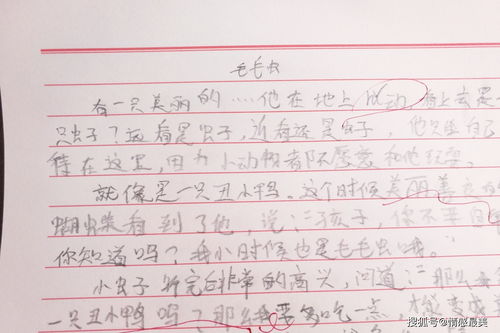 毛毛虫
有一只美丽的……他在地上爬动 看上去是一
只虫子？远看是虫子，近看还是虫子，他只是自己
待在这里，因为小动物都不愿意和他玩耍。
就像是一只丑小鸭。这个时候美丽善良的
蝴蝶看到了他，说："孩子，你不要自
你知道吗？我小时候也是毛毛虫哦。
小虫子听完后非常的高兴，问道："那么
一只丑小鸭吗？那么我要多吃一点，才能变成
搜狐号@情感最美